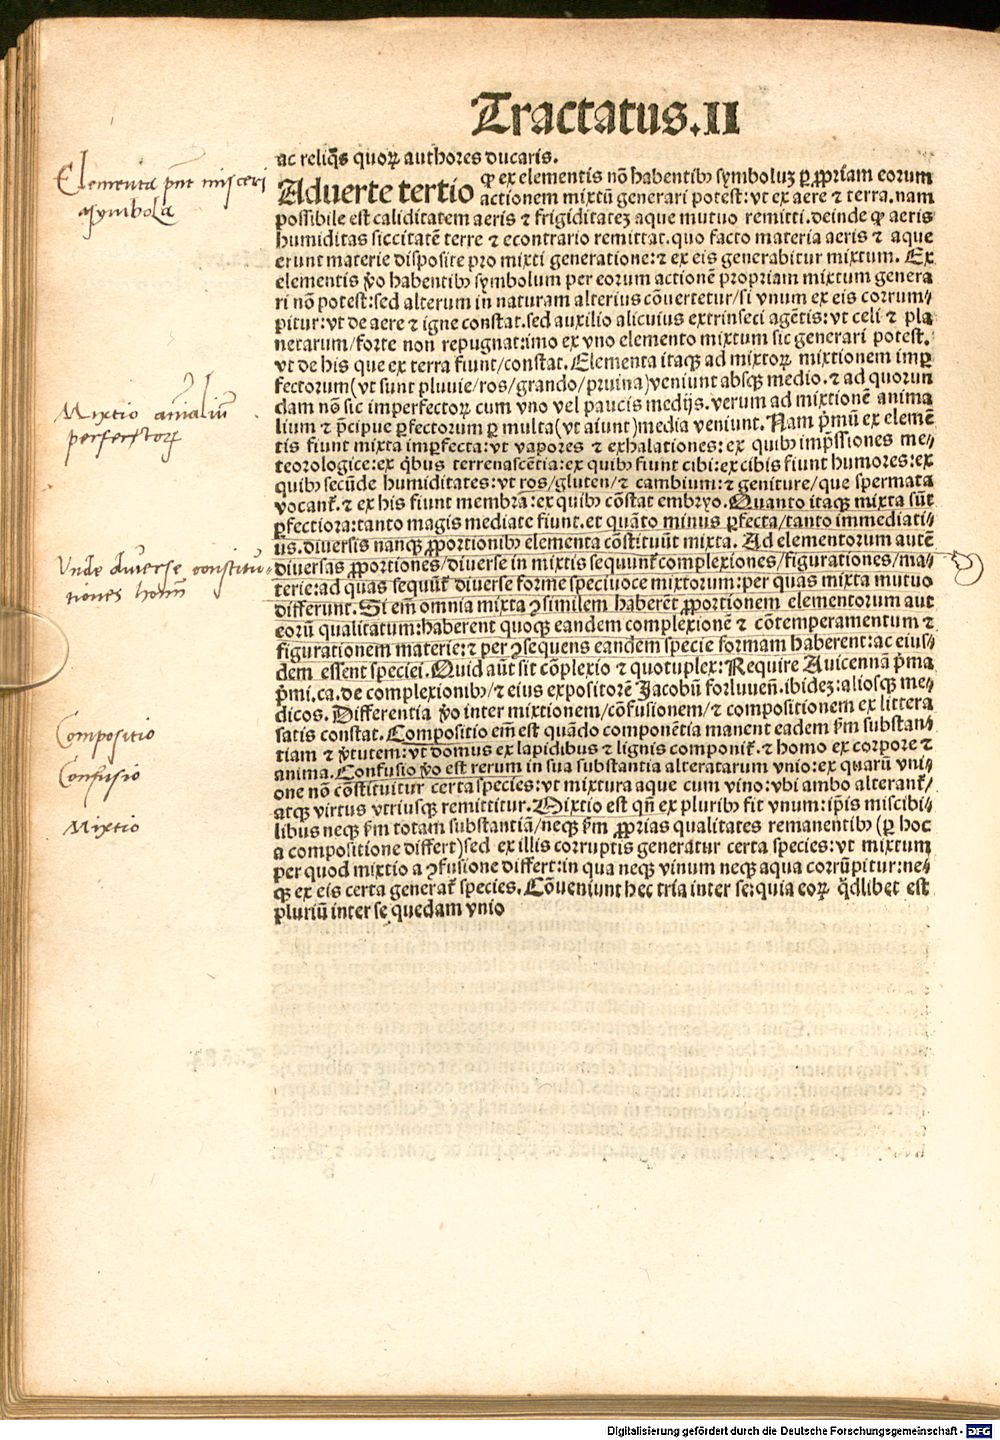 Tractatus.II
ac reliq̄s quoꝝ authores ducaris.
Aduerte tertio ꝙ ex elementis nō habentibꝰ symboluꝫ ꝑ ꝓpriam eorum
actionem mixtū generari potest: vt ex aere ⁊ terra. nam
possibile est caliditatem aeris ⁊ frigiditateꝫ aque mutuo remitti. deinde ꝙ aeris
humiditas siccitatē terre ⁊ econtrario remittat. quo facto materia aeris ⁊ aque
erunt materie disposite pro mixti generatione: ⁊ ex eis generabitur mixtum. Ex
elementis ṽo habentibꝰ symbolum per eorum actionē propriam mixtum genera
ri nō potest: sed alterum in naturam alterius cōuertetur/si vnum ex eis corrum⸗
pitur: vt de aere ⁊ igne constat. sed auxilio alicuius extrinseci agētis: vt celi ⁊ pla
netarum/forte non repugnat: imo ex vno elemento mixtum sic generari potest.
vt de his que ex terra fiunt/constat. Elementa itaqꝫ ad mixtoꝝ mixtionem imꝑ
fectorum(vt sunt pluuie/ros/grando/pruina)veniunt absqꝫ medio. ⁊ ad quorun
dam nō sic imperfectoꝝ cum vno vel paucis medijs. verum ad mixtionē anima
lium ⁊ p̄cipue ꝑfectorum ꝑ multa(vt aiunt)media veniunt. Nam p̄mū ex elemē
tis fiunt mixta imꝑfecta: vt vapores ⁊ exhalationes: ex quibꝰ imp̄ssiones me⸗
teorologice: ex q̄bus terrenascētia: ex quibꝰ fiunt cibi: ex cibis fiunt humores: ex
quibꝰ secūde humiditates: vt ros/gluten/⁊ cambium: ⁊ geniture/que spermata
vocanť. ⁊ ex his fiunt membra: ex quibꝰ cōstat embryo. Quanto itaqꝫ mixta sūt
ꝑfectiora: tanto magis mediate fiunt. et quāto minus ꝑfecta/tanto immediati⸗
us. diuersis nanqꝫ ꝓportionibꝰ elementa cōstituūt mixta. Ad elementorum autē
diuersas ꝓportiones/diuerse in mixtis sequunť complexiones/figurationes/ma⸗
terie: ad quas sequūť diuerse forme speciuoce mixtorum: per quas mixta mutuo
differunt. Si em̄ omnia mixta ꝯsimilem haberēt ꝓportionem elementorum aut
eorū qualitatum: haberent quoqꝫ eandem complexionē ⁊ cōtemperamentum ⁊
figurationem materie: ⁊ per ꝯsequens eandem specie formam haberent: ac eius⸗
dem essent speciei. Quid aūt sit cōplexio ⁊ quotuplex: Require Auicennā p̄ma
p̄mi. ca. de complexionibꝰ/⁊ eius expositorē Jacobū forluueñ. ibideꝫ: aliosqꝫ me⸗
dicos. Differentia ṽo inter mixtionem/cōfusionem/⁊ compositionem ex littera
satis constat. Compositio em̄ est quādo componētia manent eadem ẜm substan⸗
tiam ⁊ ṽtutem: vt domus ex lapidibus ⁊ lignis componiť. ⁊ homo ex corpore ⁊
anima. Confusio ṽo est rerum in sua substantia alteratarum vnio: ex quarū vni⸗
one nō cōstituitur certa species: vt mixtura aque cum vino: vbi ambo alteranť/
atqꝫ virtus vtriusqꝫ remittitur. Mixtio est qñ ex pluribꝰ fit vnum: ip̄is miscibi⸗
libus neqꝫ ẜm totam substantiā/neqꝫ ẜm ꝓprias qualitates remanentibꝰ (ꝑ hoc
a compositione differt)sed ex illis corruptis generatur certa species: vt mixtum
per quod mixtio a ꝯfusione differt: in qua neqꝫ vinum neqꝫ aqua corrūpitur: ne⸗
qꝫ ex eis certa generať species. Cōueniunt hec tria inter se: quia eoꝝ q̄dlibet est
pluriū inter se quedam vnio
Elementa pn̄t misceri
asymbola
Mixtio aīalium
perfectoꝝ
Unde diuerse constitu⸗
tiones hom̄
Compositio
Confusio
Mixtio
Digitalisierung gefördert durch die Deutsche Forschungsgemeinschaft - DFG